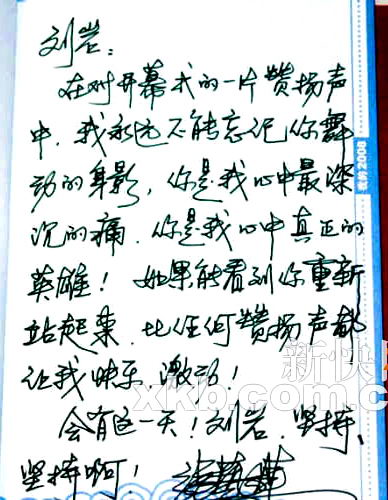 刘岩:
在对开幕式的一片赞扬声
中,我永远不能忘记你舞
动的身影,你是我心中最深
沉的痛.你是我心中真正的
英雄!如果能看到你重新
站起来.比任何赞扬声都
让我快乐,激动!
会有这一天!刘岩.坚持、
坚持啊!
2008
新快
xkb.com.c